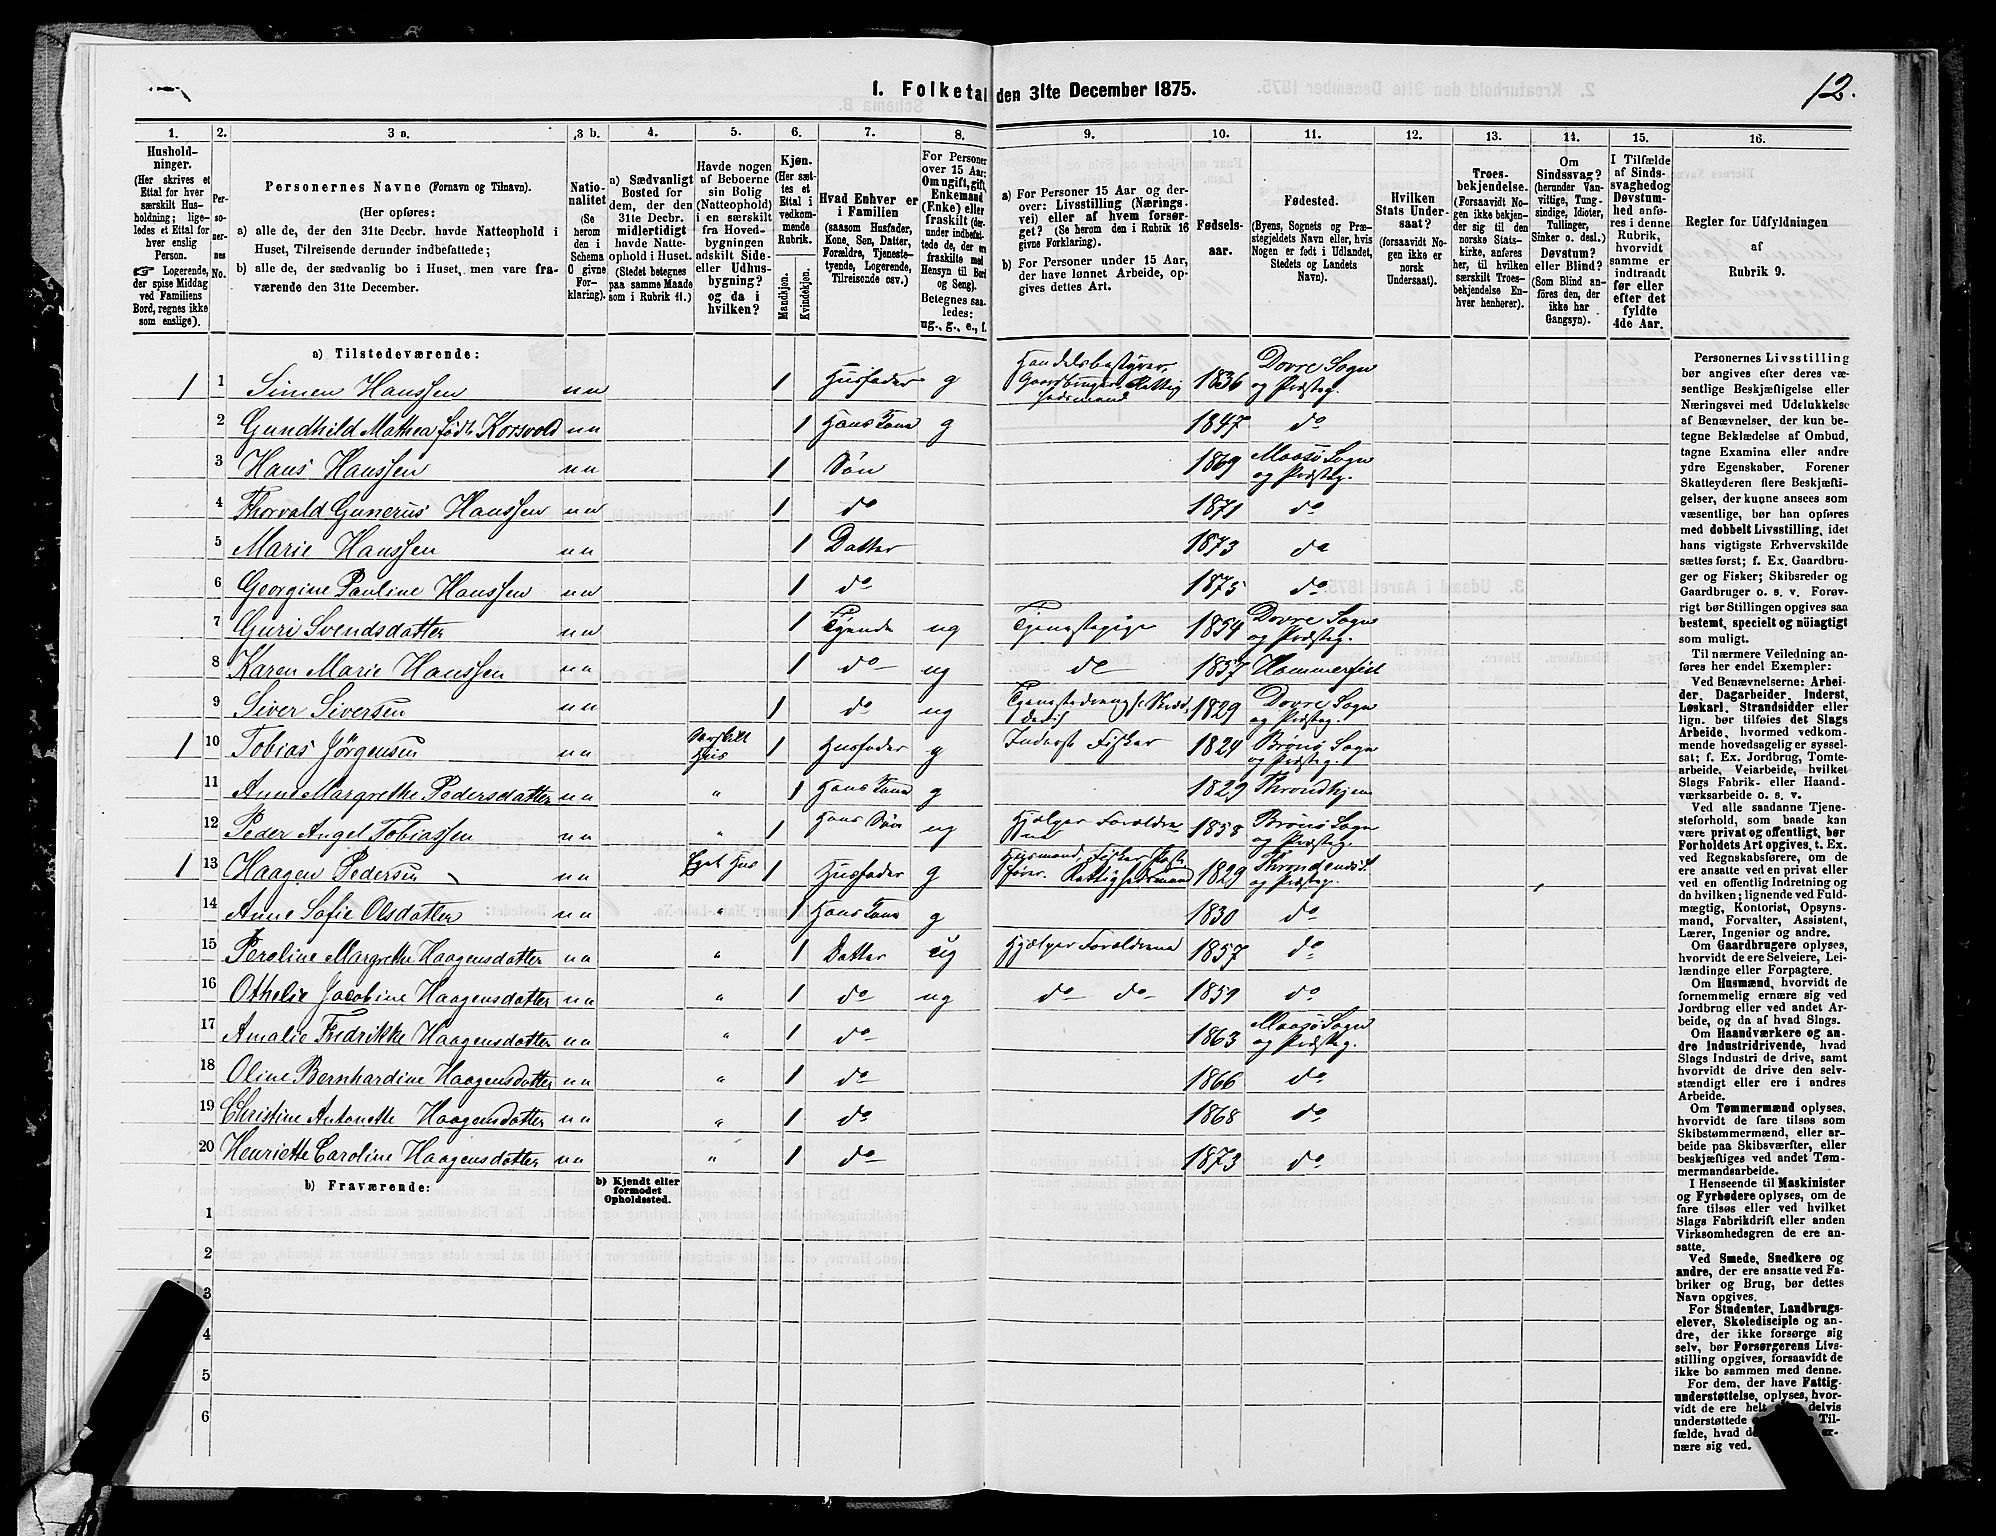 1. Folketal den 31te December 1875.
12.
1. 2. 3 a. 3 b. 4. 5. 6. 7. 8. 9. 10. 11. 12. 13. 14. 15. 16.
Hushold-
ninger.
(Her skrives et
Ettal for hver
særskilt Hus-
holdning; lige-
ledes et Ettal for
hver enslig
Person.
☞ Logerende,
der spise Middag
ved Familiens
Bord, regnes ikke
som enslige).
Per-
so-
ner-
nes
No.
Personernes Navne (Fornavn og Tilnavn).
(Her opføres:
a) alle de, der den 31te Decbr. havde Natteophold i
Huset, Tilreisende derunder indbefattede;
b) alle de, der sædvanlig bo i Huset, men vare fra-
værende den 31te December.
Natio-
nalitet
(Se
herom
den i
Schema
C givne
For-
klaring).
a) Sædvanligt
Bosted for
dem, der den
31te Decbr.
midlertidigt
havde Natte-
ophold i Huset.
(Stedet betegnes
paa samme Maade
som i Rubrik 11.)
Havde nogen
af Beboerne
sin Bolig
(Natteophold)
i en særskilt
fra Hoved-
bygningen
adskilt Side-
eller Udhus-
bygning?
og da i
hvilken?
Kjøn.
(Her sæt-
tes et
Ettal i
vedkom-
mende
Rubrik.
Mandkjøn.
Kvindekjøn.
Hvad Enhver er
i Familien
(saasom Husfader,
Kone, Søn, Datter,
Forældre, Tjeneste-
tyende, Logerende,
Tilreisende osv.)
For Personer
over 15 Aar:
Om ugift, gift,
Enkemand
(Enke) eller
fraskilt (der-
iblandt indbefat-
tede de, der ere
fraskilte med
Hensyn til Bord
og Seng).
Betegnes saa-
ledes:
ug., g., e., f.
a) For Personer 15 Aar og der-
over: Livsstilling (Nærings-
vei) eller af hvem forsør-
get? (Se herom den i Rubrik 16
givne Forklaring).
b) For Personer under 15 Aar,
der have lønnet Arbeide, op-
gives dettes Art.
Fødsels-
aar.
Fødested.
(Byens, Sognets og Præ-
stegjeldets Navn eller, hvis
Nogen er født i Udlandet,
Stedets og Landets
Navn).
Hvilken
Stats Under-
saat?
(forsaavidt No-
gen ikke er
norsk
Undersaat).
Troes-
bekjendelse.
(Forsaavidt No-
gen ikke bekjen-
der sig til den
norske Stats-
kirke, anføres
her, til hvilken
særskilt Troes-
bekjendelse En-
hver henhører).
Om
Sindssvag?
(herunder Van-
vittige, Tung-
sindige, Idioter,
Tullinger,
Sinker o. desl.)
Døvstum?
eller Blind?
(Som Blind an-
føres den, der
ikke har
Gangsyn).
I Tilfælde
af Sinds-
svaghed og
Døvstum-
hed anfø-
res i denne
Rubrik,
hvorvidt
samme er
indtraadt
før eller
efter det
fyldte
4de Aar.
Regler for Udfyldningen
af
Rubrik 9.
a) Tilstedeværende:
1 1 Simen Hanssen nn 1 Husfader g Handelsbestyrer, 1836 Dovre Sogn og Præsteg.
2 Gundhild Mathea født Korsvold nn 1 Hans Kone g 1847 do
3 Hans Hanssen nn 1 Søn 1869 Maasø Sogn og Præsteg.
4 Thorvald Gunerus Hanssen nn 1 do 1871 do
5 Marie Hanssen nn 1 Datter 1873 do
6 Georgine Pauline Hanssen nn 1 do 1875 do
7 Guri Svendsdatter nn 1 Tyende ug Tjenestepige 1854 Dovre Sogn og Præsteg.
8 Karen Marie Hanssen nn 1 do ug do 1857 Hammerfest
9 Siver Siversen nn 1 do ug 1829 Dovre Sogn og Præsteg.
1 10 Tobias Jørgensen nn Særskilt Hus 1 Husfader g Inderst Fisker 1824 Brønø Sogn og Præsteg.
11 Anne Margrethe Pedersdatter nn " 1 Hans Kone g 1829 Throndhjem
12 Peder Angel Tobiassen nn " 1 Hans Søn ug Hjælper Forældrene 1858 Brønø Sogn og Præsteg.
1 13 Haagen Pedersen nn Eget Hus 1 Husfader g Husmand, Fisker 1829 Throndenæs S. og Præsteg.
14 Anne Sofie Olsdatter nn " 1 Hans Kone g 1830 do
15 Peroline Margrethe Haagensdatter nn " 1 Datter ug Hjælper Forældrene 1857 do
16 Othelie Jacobine Haagensdatter nn " 1 do ug do do 1859 do
17 Amalie Fredrikke Haagensdatter nn " 1 do 1863 Maasø Sogn og Præsteg.
18 Oline Bernhardine Haagensdatter nn " 1 do 1866 do
19 Christine Antonette Haagensdatter nn " 1 do 1868 do
20 Henriette Caroline Haagensdatter nn " 1 do 1873 do
b) Fraværende:
b) Kjendt eller
formodet
Opholdssted.
1
2
3
4
5
6
Personernes Livsstilling
bør angives efter deres væ-
sentlige Beskjæftigelse eller
Næringsvei med Udelukkelse
af Benævnelser, der kun be-
tegne Beklædelse af Ombud,
tagne Examina eller andre
ydre Egenskaber. Forener
Skatteyderen flere Beskjæfti-
gelser, der kunne ansees som
væsentlige, bør han opføres
med dobbelt Livsstilling, idet
hans vigtigste Erhvervskilde
sættes først; f. Ex. Gaardbru-
ger og Fisker; Skibsreder og
Gaardbruger o. s. v. Forøv-
rigt bør Stillingen opgives saa
bestemt, specielt og nöiagtigt
som muligt.
Til nærmere Veiledning an-
føres her endel Exempler:
Ved Benævnelserne: Arbei-
der, Dagarbeider, Inderst,
Løskarl, Strandsidder eller
lign. bør tilføies det Slags
Arbeide, hvormed vedkom-
mende hovedsagelig er syssel-
sat; f. Ex. Jordbrug, Tomte-
arbeide, Veiarbeide, hvilket
Slags Fabrik- eller Haand-
værksarbeide o. s. v.
Ved alle saadanne Tjene-
steforhold, som baade kan
være privat og offentligt, bør
Forholdets Art opgives, t. Ex.
ved Regnskabsførere, om de
ere ansatte ved en privat eller
ved en offentlig Indretning og
da hvilken; lignende ved Fuld-
mægtig, Kontorist, Opsyns-
mand, Forvalter, Assistent,
Lærer, Ingeniør og andre.
Om Gaardbrugere oplyses,
hvorvidt de ere Selveiere, Lei-
lændinge eller Forpagtere.
Om Husmænd, hvorvidt de
fornemmelig ernære sig ved
Jordbrug eller ved andet Ar-
beide, og da af hvad Slags.
Om Haandværkere og an-
dre Industridrivende, hvad
Slags Industri de drive, samt
hvorvidt de drive den selv-
stændigt eller ere i andres
Arbeide.
Om Tømmermænd oplyses,
hvorvidt de fare tilsøs som
Skibstømmermænd, eller ar-
beide paa Skibsværfter, eller
beskjæftiges ved andet Tøm-
mermandsarbeide.
I Henseende til Maskinister
og Fyrbødere oplyses, om de
fare tilsøs eller ved hvilket
Slags Fabrikdrift eller anden
Virksomhedsgren de ere an-
satte.
Ved Smede, Snedkere og
andre, der ere ansatte ved Fa-
briker og Brug, bør dettes
Navn opgives.
For Studenter, Landbrugs-
elever, Skoledisciple og an-
dre, der ikke forsørge sig
selv, bør Forsørgerens Livs-
stilling opgives, forsaavidt de
ikke bo sammen med denne.
For dem, der have Fattig-
understøttelse, oplyses, hvor-
vidt de ere helt delvis
understøttede Til-
fælde, hvad er-
nære sig ved.